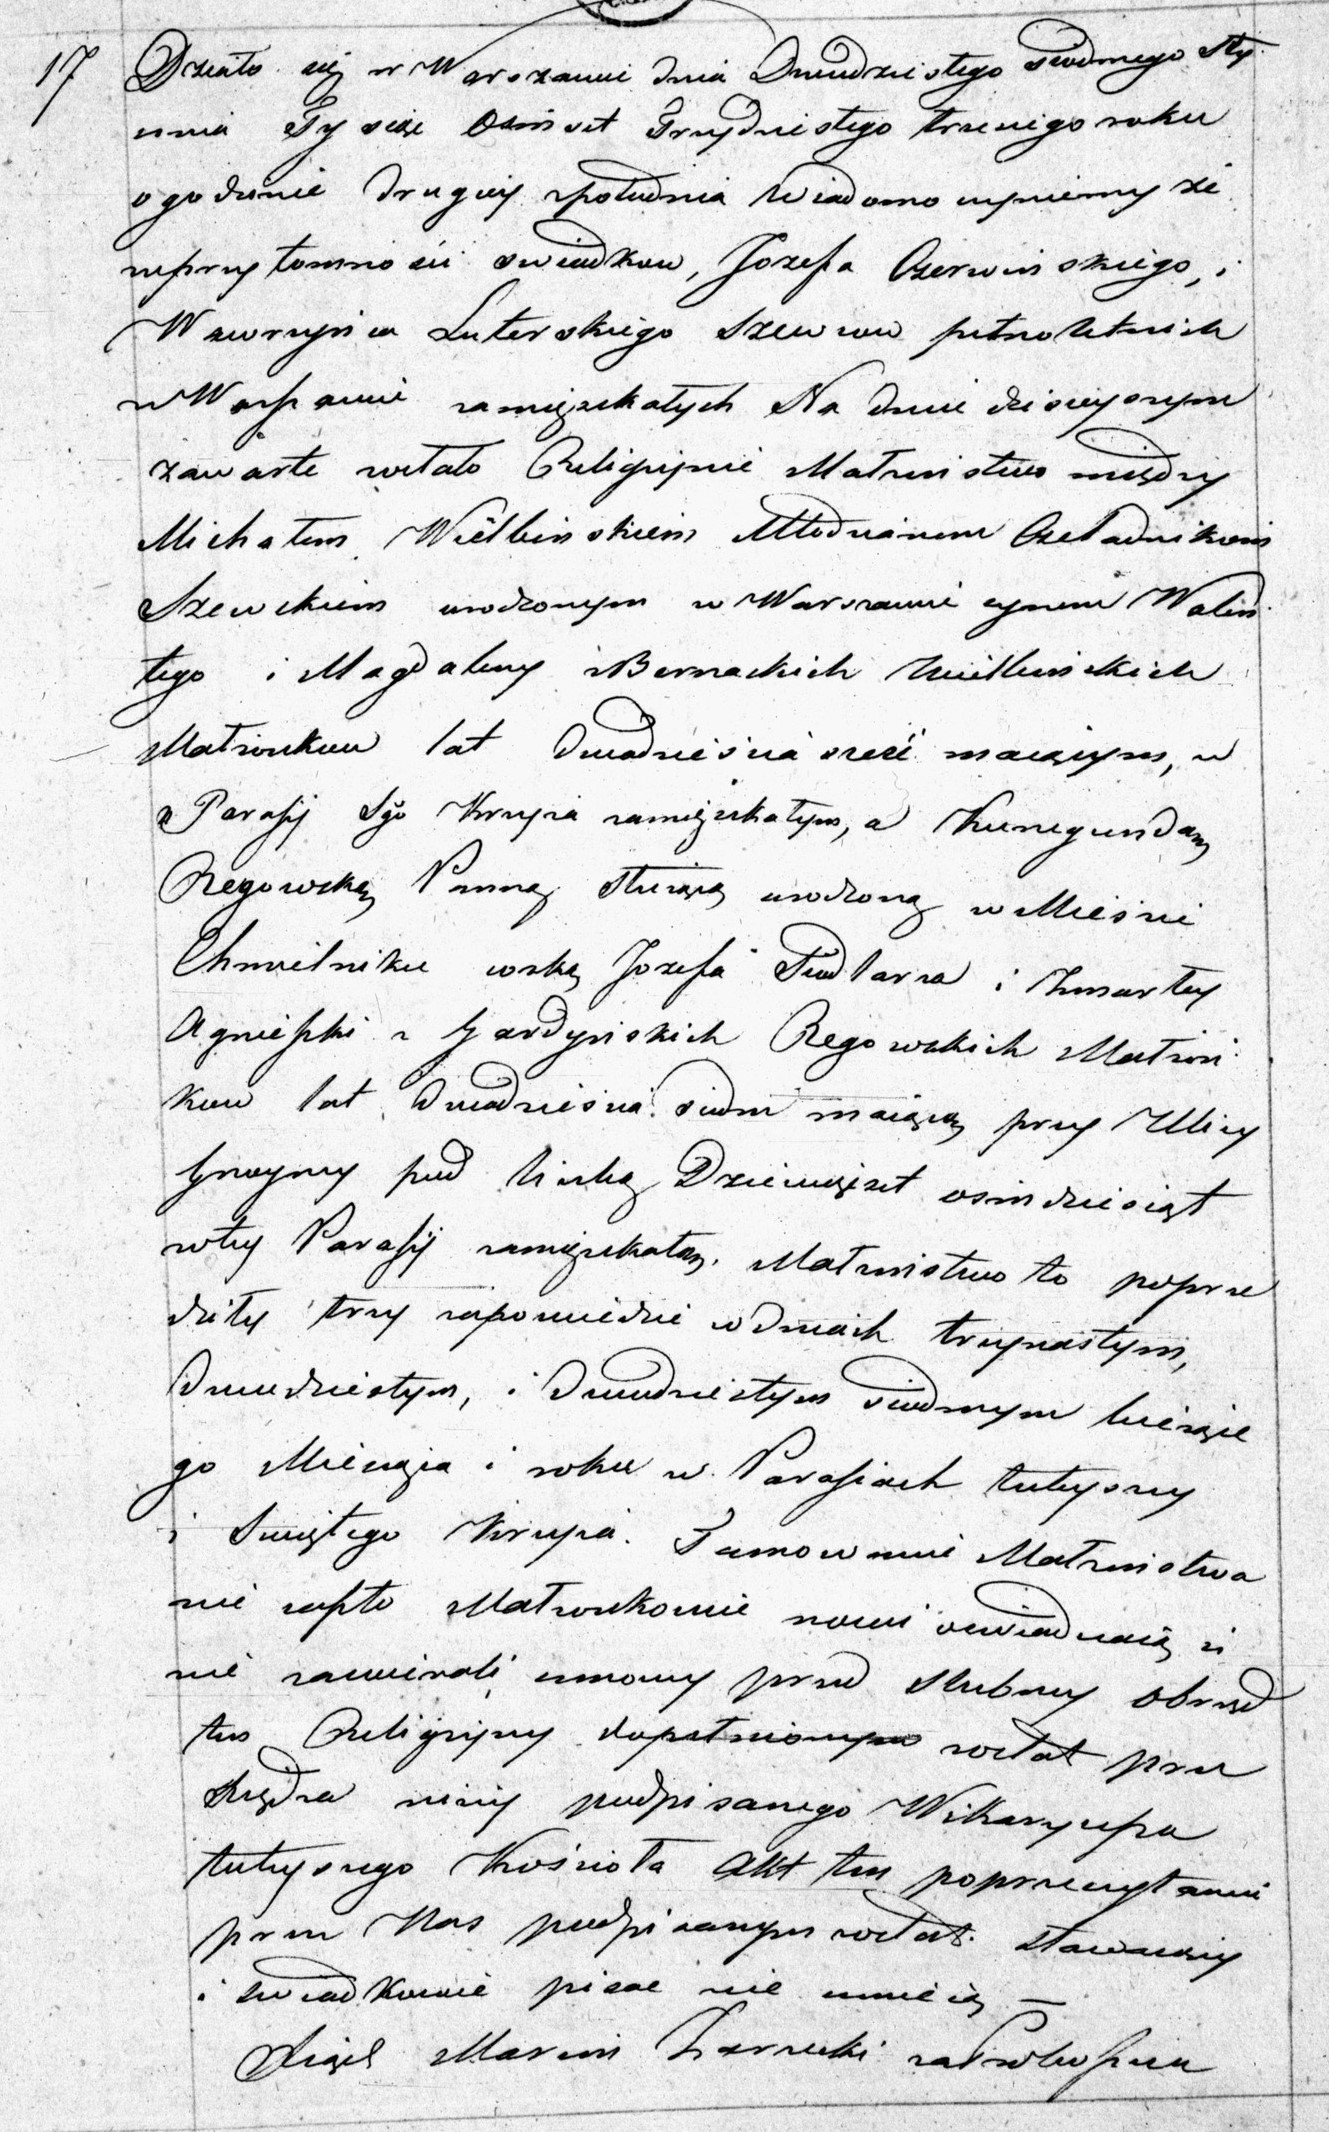 17 Działo się w Warszawie dnia Dwudziestego siodmego Sty
cznia Tysiąc Osmset Trzydziestego trzeciego roku
o godzinie drugiey z południa Wiadomo czyniemy że
w przytomności swiadkow, Jozefa Czerwinskiego, i
Wawrzyńca Luterskiego Szewcow pełnoletnich
w Warszawie zamięszkałych Na dniu dzisieyszym
zawarte zostało Religiynie Małżeństwo między
Michałem Wielbinskiem Młodzianem Czeladnikiem
Szewckiem urodzonym w Warszawie synem Walen
tego i Magdaleny z Bernackich Wielbinskich
Małżonkow lat dwadzieścia sześć maiącym, w
Parafij Sgo Krzyża zamięszkałym, a Kunegundą
Regowską Panną służącą urodzoną w Mieście
Chmielniku corką Jozefa Stolarza i Zmarłey
Agnieszki z Gardyńskich Regowskich Małżon
kow lat dwadzieścia siedm maiącą przy Ulicy
pod liczbą Dziewięćset osmdziesiąt
w tey Parafij zamięszkałą. Małżeństwo to poprze
dziły trzy zapowiedzie w dniach trzynastym,
dwudziestym, i dwudziestym siodmym bieżące
go Miesiąca i roku w Parafiach tuteyszey
i Swiętego Krzyża. Tamowanie Małżeństwa
nie zaszło Małżonkowie nowi oswiadczaią iż
nie zawierali umowy przed slubney Obrząd
ten Religiyny dopełnionym został przez
Xiędza niżey podpisanego Wikaryusza
tuteyszego Kościoła Akt ten po przeczytaniu
przez Nas podpisanym został. Stawaiący
i swiadkowie pisać nie umieią —
Xiądz Marcin Zarzecki